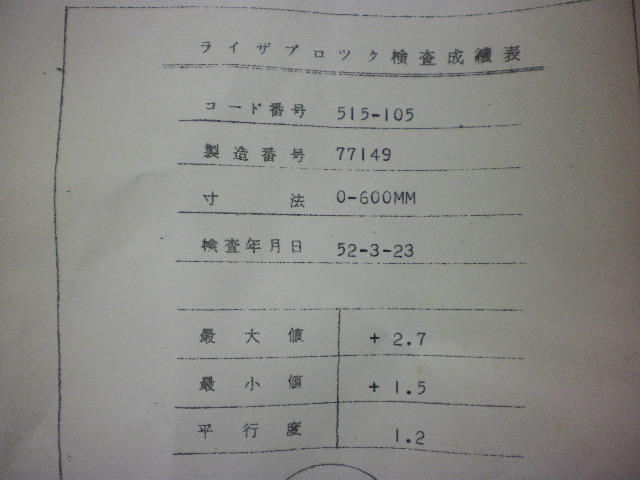 ライザブロツク検査成績表
コード番号 515-105
製造番号 77149
寸法 0-600MM
検査年月日 52-3-23
最大値 +2.7
最小値 +1.5
平行度 1.2